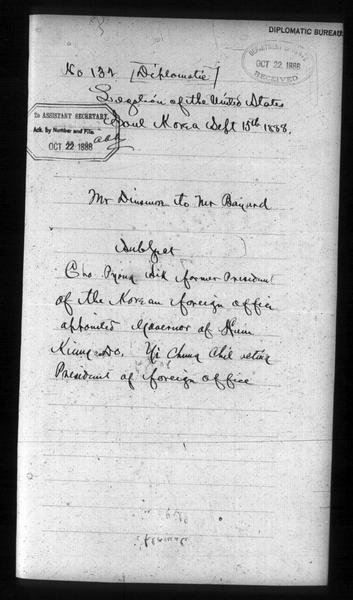 DIPLOMATIC BUREAU
DEPARTMENT OF STATE
OCT 22 1888
RECEIVED
No 132 [Diplomatic]
Legation of the United States
Seoul Korea Sept 15th 1888.
To ASSISTANT SECRETARY.
Ack. By Number and File.
OCT 22 1888
Mr Dinsmore to Mr Bayard
Subject
Cho Pyong Sik former President
of the Korean foreign office
appointed Governor of
Do. Yi Chung Chil acting
President of foreign office